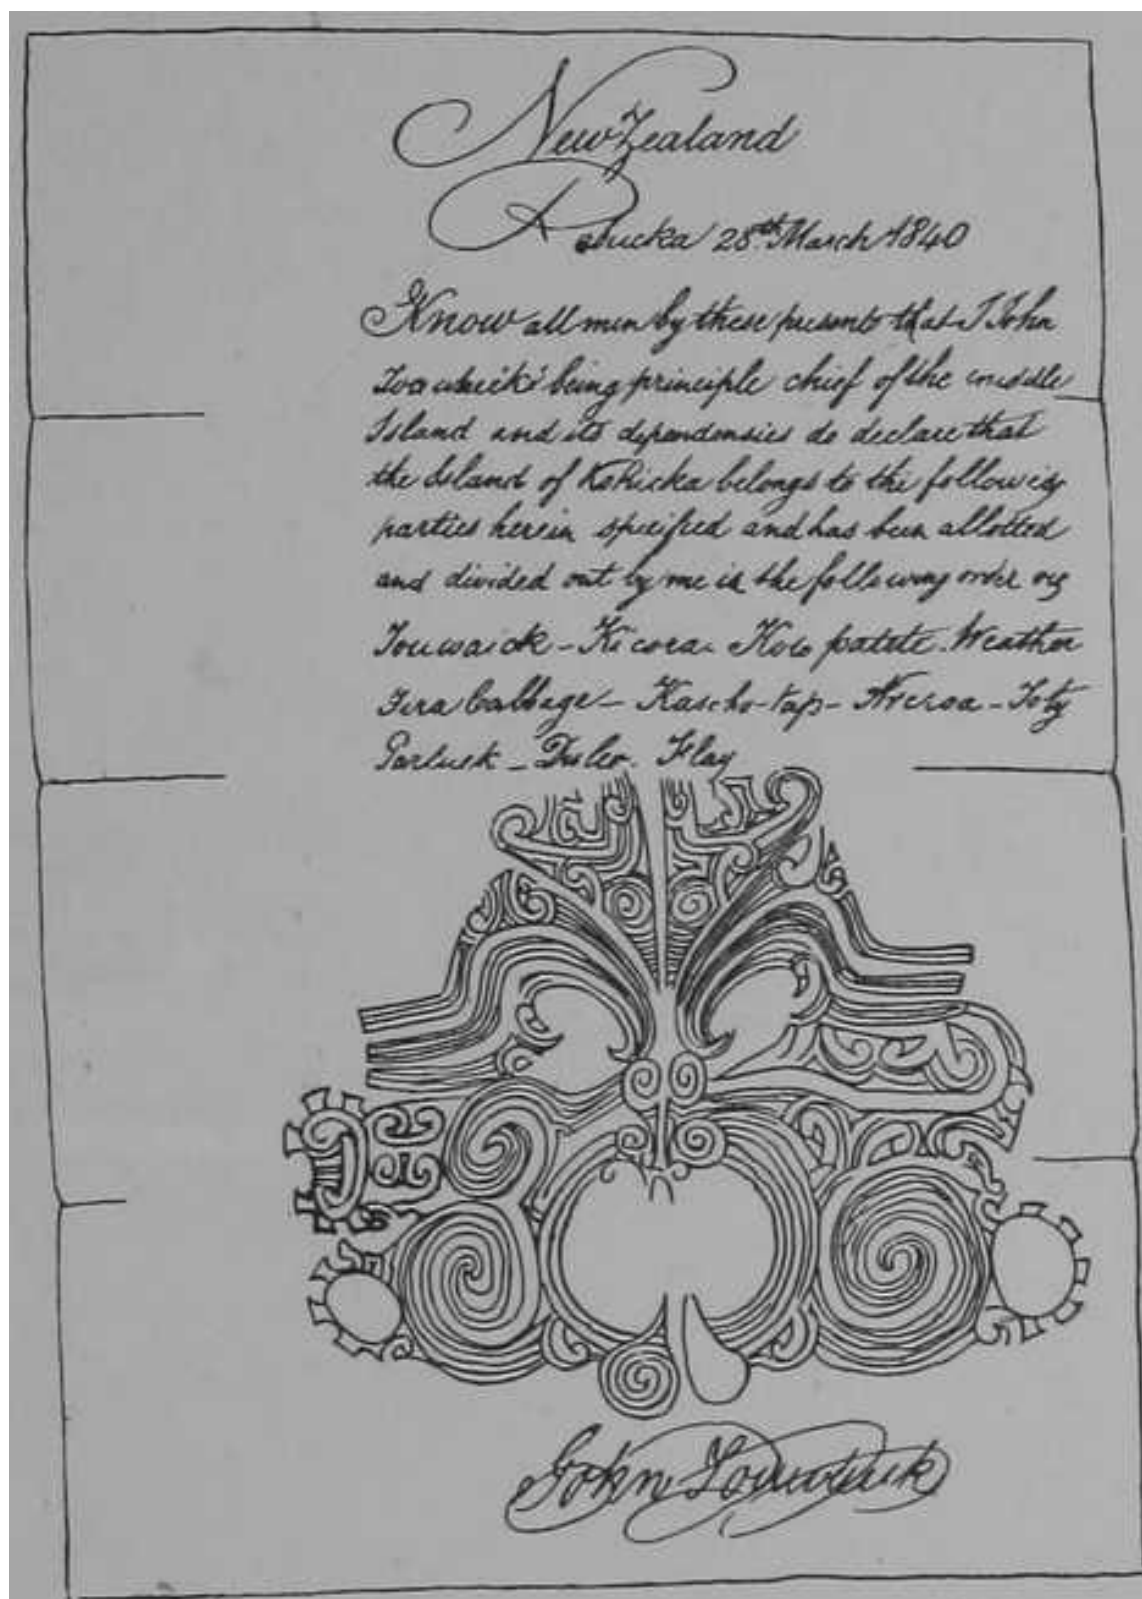 New Zealand
Rabucka 28th March 1840
Know all men by these presents that I John
being principle chief of the middle
Island and its dependensies do declare that
the Island of KoRicka belongs to the following
parties herein specified and has been allotted
and divided out by me in the following order viz
Touwaick - Kicora. Kow patete. Weather
Tera Cabbage - Kascho-tap - - Toby
Parluek - Flag
John Touwaick